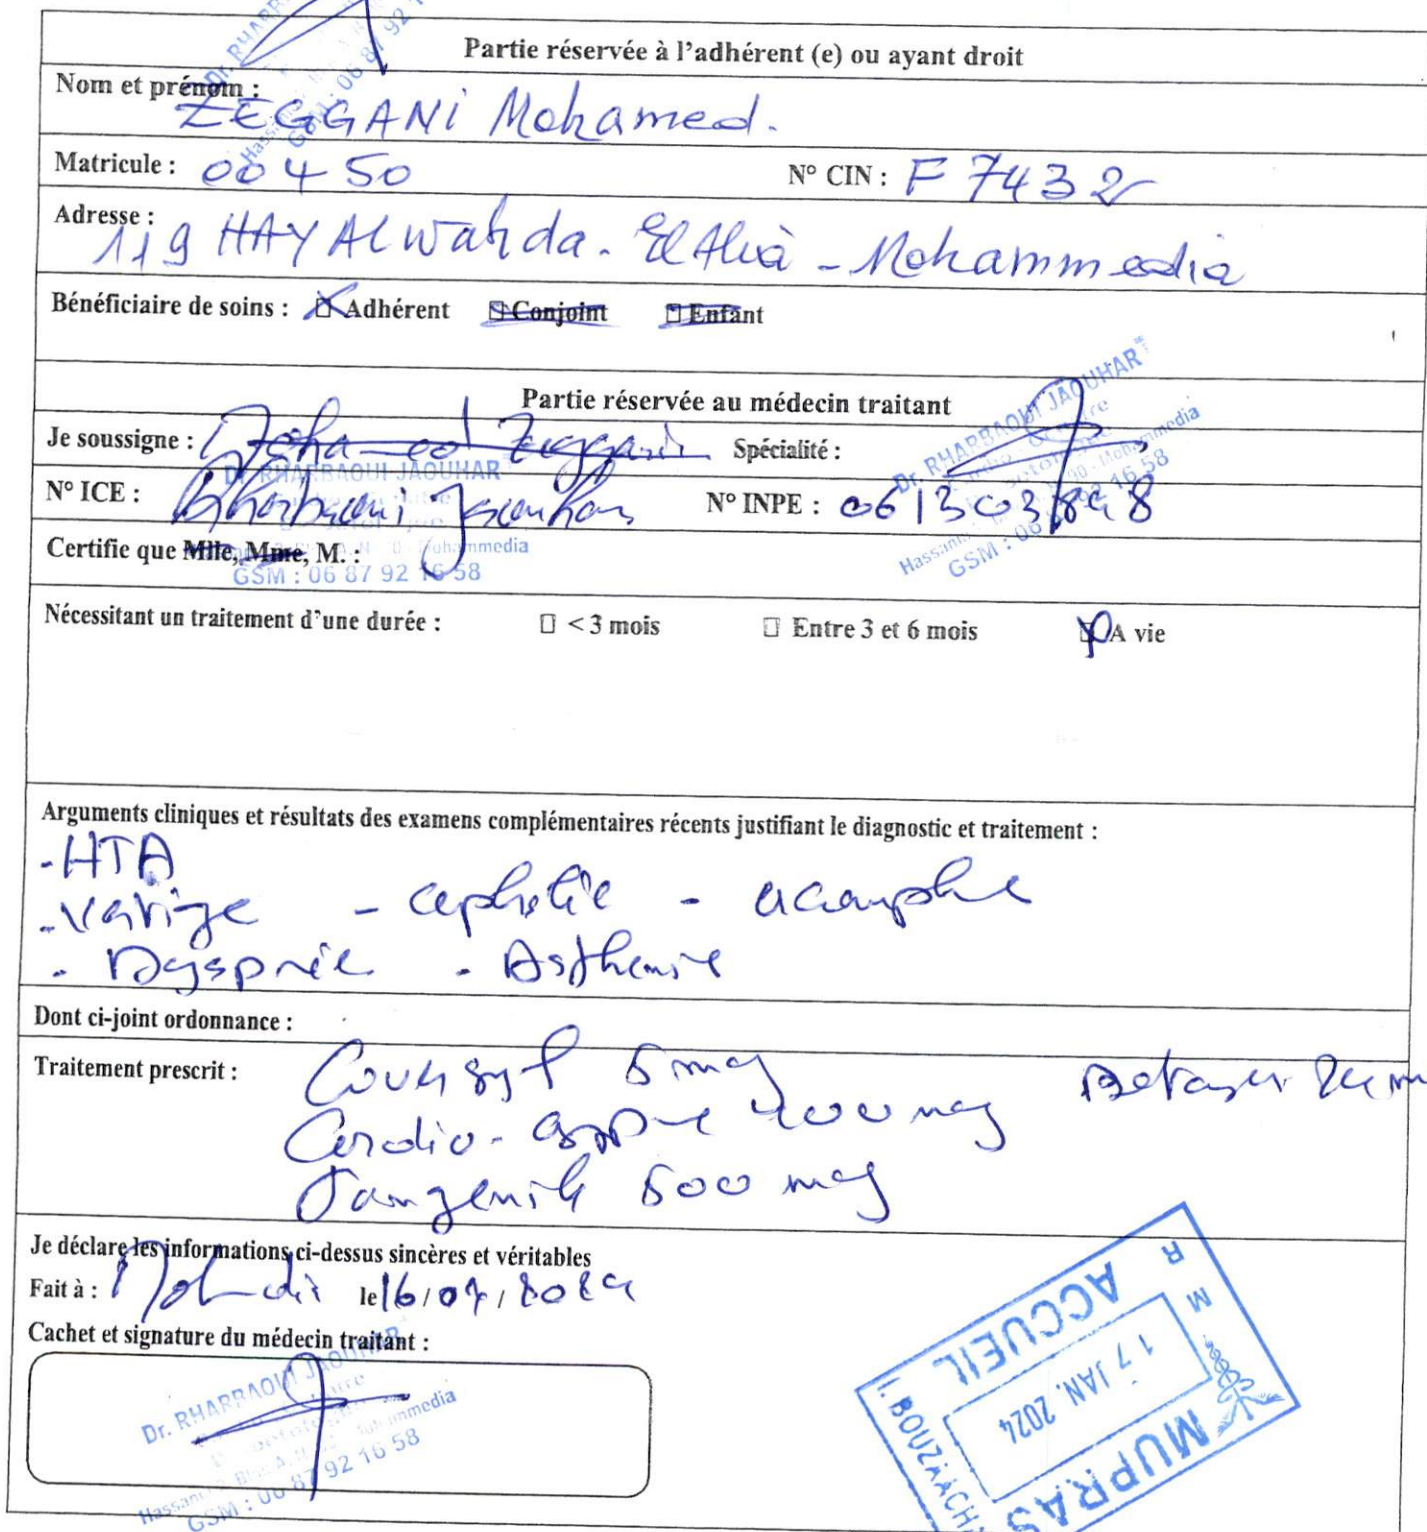 Dr. RHARB
GSM : 06 87 92 1
Partie réservée à l'adhérent (e) ou ayant droit
Nom et prénom :
ZEGGANI Mohamed.
Matricule : 00450 N° CIN : F 7432
Adresse :
119 HAY Al Wahda. El Alia - Mohammedia
Bénéficiaire de soins : Adhérent Conjoint Enfant
Partie réservée au médecin traitant
Je soussigne : Mohamed Zeggani Spécialité :
Dr. RHARBAOUI JAOUHAR
N° ICE : Rharbaoui Jaouhar N° INPE :
Certifie que Mlle, Mme, M. :
Mohammedia
GSM : 06 87 92 16 58
Dr. RHARBAOUI JAOUHAR
Mohammedia
GSM : 06 87 92 16 58
Nécessitant un traitement d'une durée : < 3 mois Entre 3 et 6 mois A vie
Arguments cliniques et résultats des examens complémentaires récents justifiant le diagnostic et traitement :
- HTA
- Vertige - cephalée - acouphe
- Dyspnée - Asthenie
Dont ci-joint ordonnance :
Traitement prescrit :
Coversyl 5 mg
Cardio-
Tanganil 500 mg
Je déclare les informations ci-dessus sincères et véritables
Fait à : le 16/01/2024
Cachet et signature du médecin traitant :
Dr. RHARBAOUI JAOUHAR
Mohammedia
GSM : 06 87 92 16 58
MUPRAS
17 JAN. 2024
ACCUEIL
R M
I. BOUZAACH